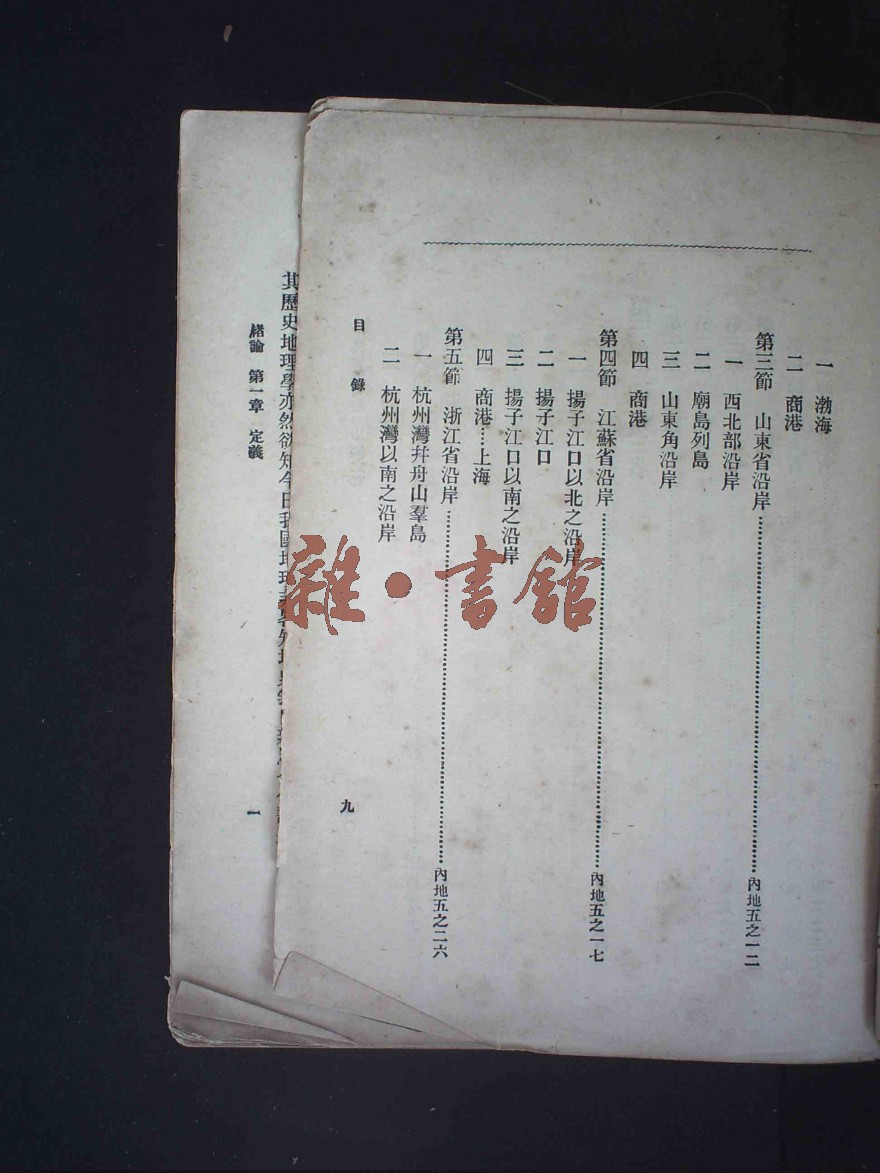 一　渤海
二　商港
第三節　山東省沿岸……內地五之一二
一　西北部沿岸
二　廟島列島
三　山東角沿岸
四　商港
第四節　江蘇省沿岸……內地五之一七
一　揚子江口以北之沿岸
二　揚子江口
三　揚子江口以南之沿岸
四　商港…上海
第五節　浙江省沿岸……內地五之二六
一　杭州灣幷舟山羣島
二　杭州灣以南之沿岸
目　錄
九
其歷史地理學亦然欲知今日我國地理
緖論　第一章　定義
一
雜·書館